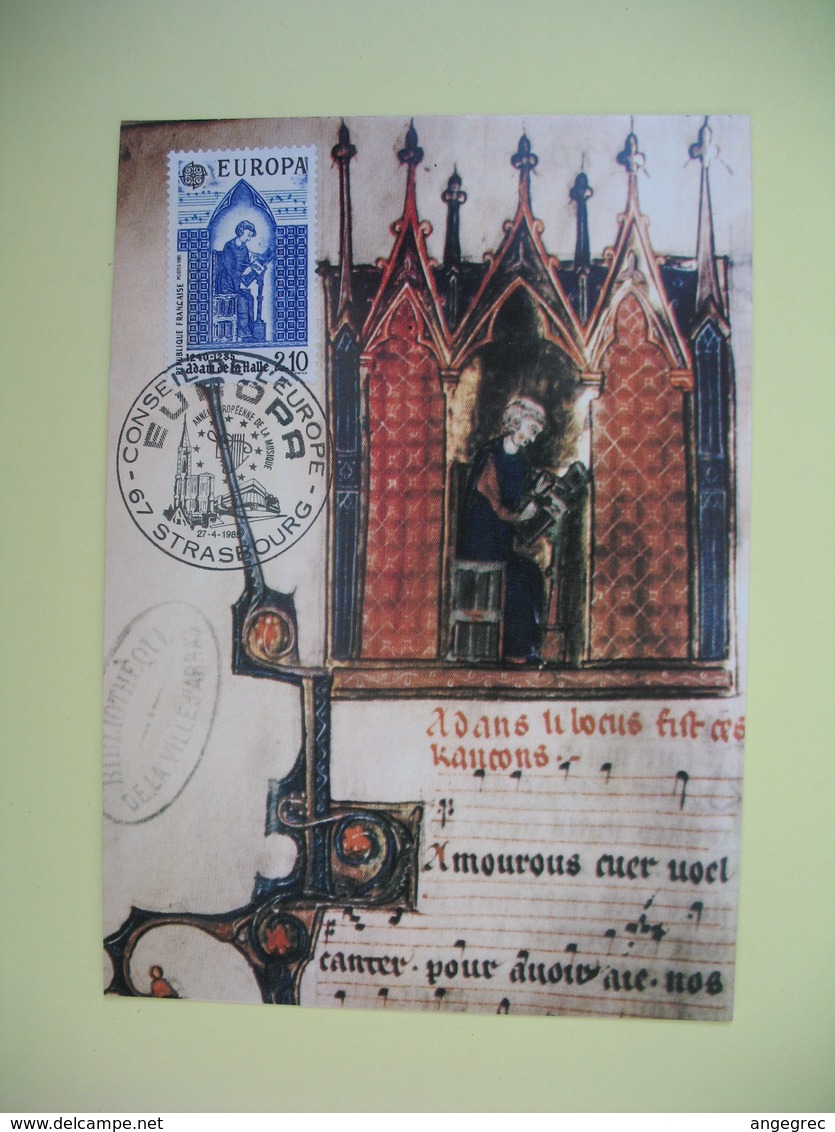 EUROPA
RÉPUBLIQUE FRANÇAISE POSTES 1985
1240-1285
adam de la Halle 2,10
- CONSEIL DE L'EUROPE -
EUROPA
ANNÉE EUROPÉENNE DE LA MUSIQUE
27-4-1985
67 STRASBOURG
BIBLIOTHÈQUE
DE LA VILLE D'ARRAS
Adans li bocus fist ces
kancons.
Amourous cuer uoel
canter. pour auoir aie. nos
delcampe.net
angegrec